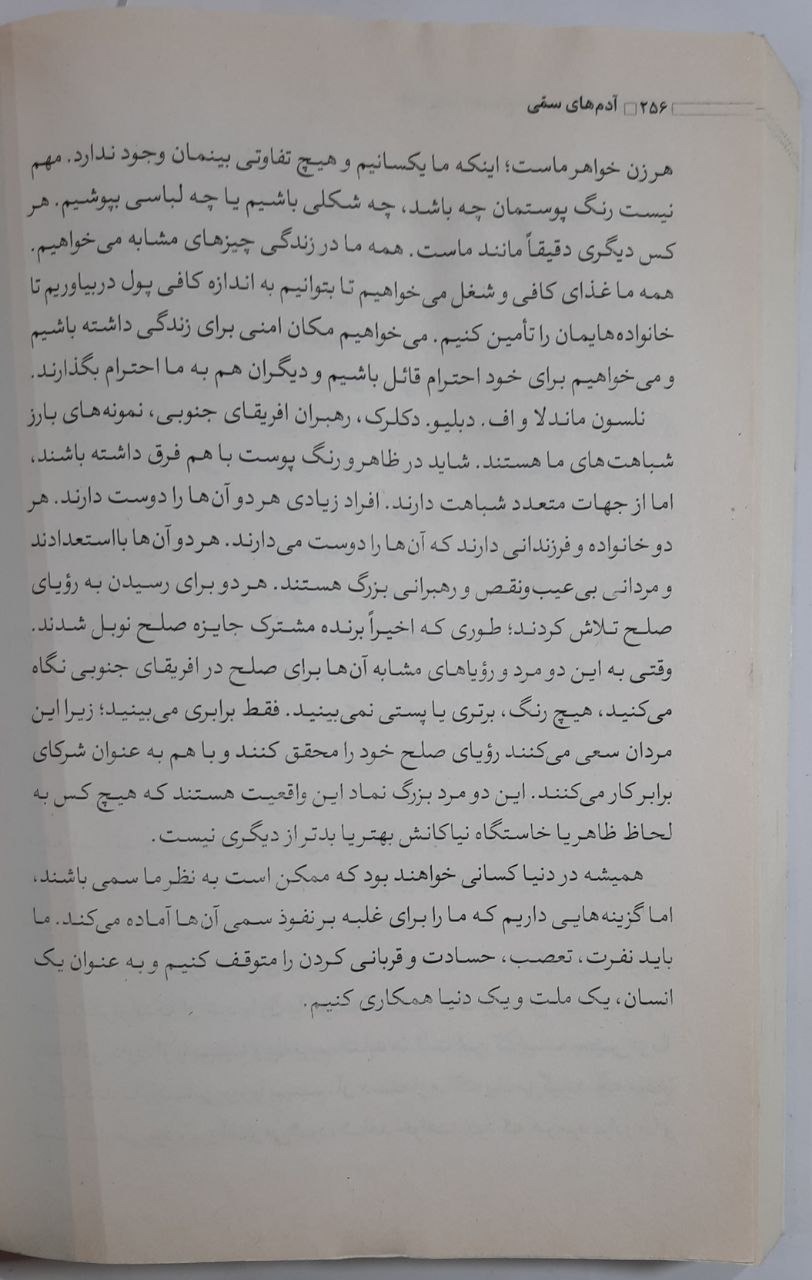 ۲۵۶ □ آدم‌های سمّی
هر زن خواهر ماست؛ اینکه ما یکسانیم و هیچ تفاوتی بینمان وجود ندارد. مهم
نیست رنگ پوستمان چه باشد، چه شکلی باشیم یا چه لباسی بپوشیم. هر
کس دیگری دقیقاً مانند ماست. همه ما در زندگی چیزهای مشابه می‌خواهیم.
همه ما غذای کافی و شغل می‌خواهیم تا بتوانیم به اندازه کافی پول دربیاوریم تا
خانواده‌هایمان را تأمین کنیم. می‌خواهیم مکان امنی برای زندگی داشته باشیم
و می‌خواهیم برای خود احترام قائل باشیم و دیگران هم به ما احترام بگذارند.
نلسون ماندلا و اف. دبلیو. دکلرک، رهبران افریقای جنوبی، نمونه‌های بارز
شباهت‌های ما هستند. شاید در ظاهر و رنگ پوست با هم فرق داشته باشند،
اما از جهات متعدد شباهت دارند. افراد زیادی هر دو آن‌ها را دوست دارند. هر
دو خانواده و فرزندانی دارند که آن‌ها را دوست می‌دارند. هر دو آن‌ها بااستعدادند
و مردانی بی‌عیب‌ونقص و رهبرانی بزرگ هستند. هر دو برای رسیدن به رؤیای
صلح تلاش کردند؛ طوری که اخیراً برنده مشترک جایزه صلح نوبل شدند.
وقتی به این دو مرد و رؤیاهای مشابه آن‌ها برای صلح در افریقای جنوبی نگاه
می‌کنید، هیچ رنگ، برتری یا پستی نمی‌بینید. فقط برابری می‌بینید؛ زیرا این
مردان سعی می‌کنند رؤیای صلح خود را محقق کنند و با هم به عنوان شرکای
برابر کار می‌کنند. این دو مرد بزرگ نماد این واقعیت هستند که هیچ کس به
لحاظ ظاهر یا خاستگاه نیاکانش بهتر یا بدتر از دیگری نیست.
همیشه در دنیا کسانی خواهند بود که ممکن است به نظر ما سمی باشند،
اما گزینه‌هایی داریم که ما را برای غلبه بر نفوذ سمی آن‌ها آماده می‌کند. ما
باید نفرت، تعصب، حسادت و قربانی کردن را متوقف کنیم و به عنوان یک
انسان، یک ملت و یک دنیا همکاری کنیم.